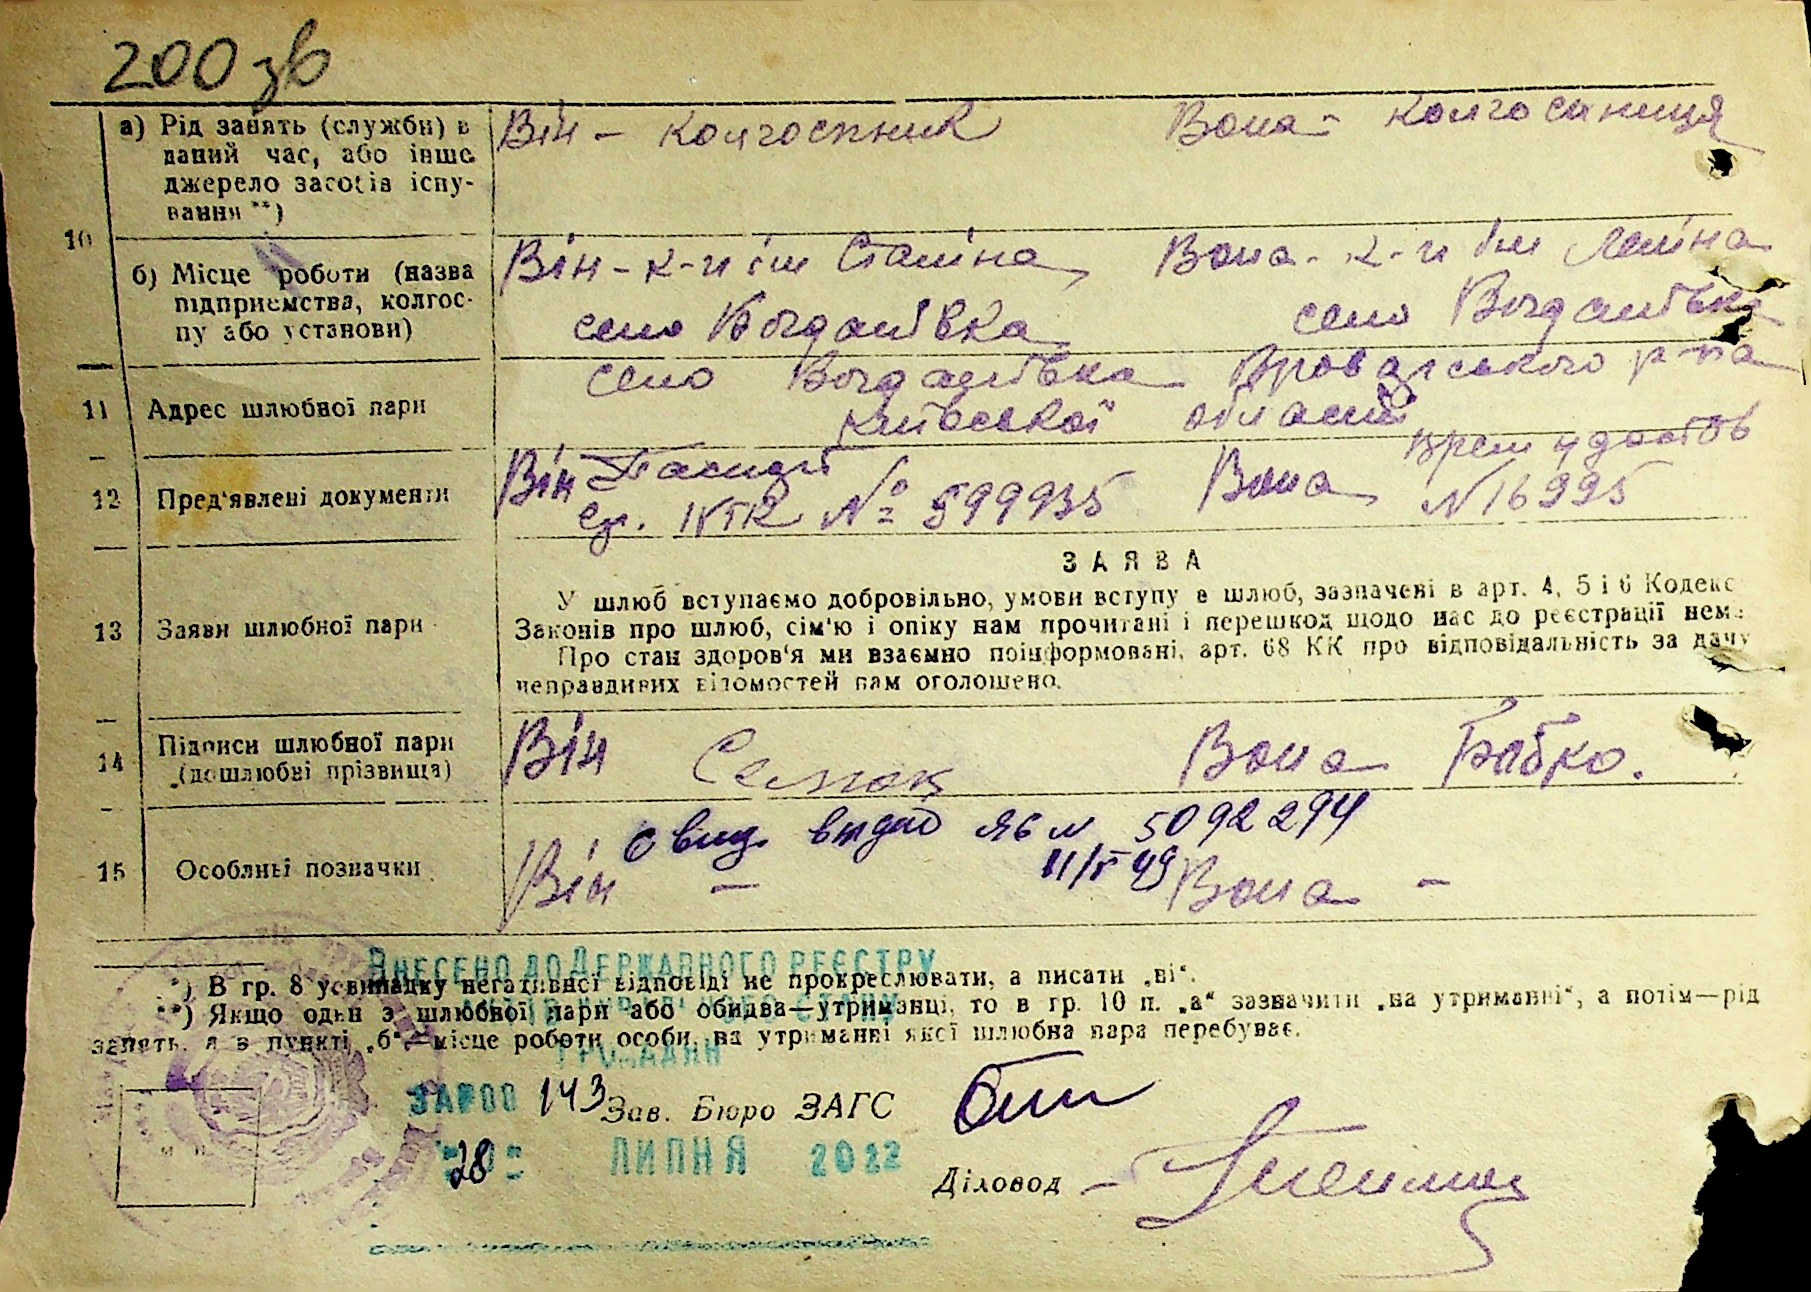 200 зв
а) Рід занять (служби) в
даний час, або інше
джерело засобів існу-
вання **)
Він – колгоспник Вона – колгоспниця
10
б) Місце роботи (назва
підприємства, колгос-
пу або установи)
Він – к-п ім Сталіна Вона – к-п ім Леніна
село Богданівка село Богданівка
11 Адрес шлюбної пари
село Богданівка Броварського р-на
Київської області
12 Пред'явлені документи
Він Паспорт Вона Врем удостов
№ 599935 N 16995
13 Заяви шлюбної пари
ЗАЯВА
У шлюб вступаємо добровільно, умови вступу в шлюб, зазначені в арт. 4, 5 і 6 Кодекс
Законів про шлюб, сім'ю і опіку нам прочитані і перешкод щодо нас до реєстрації нема
Про стан здоров'я ми взаємно поінформовані, арт. 68 КК про відповідальність за дачу
неправдивих відомостей нам оголошено.
14 Підписи шлюбної пари
(дошлюбні прізвища)
Він Вона Бабко.
15 Особливі позначки
Свид. видано ЯБ N 5092294
11/V 49
Він – Вона –
ВНЕСЕНО ДО ДЕРЖАВНОГО РЕЄСТРУ
*) В гр. 8 у випадку негативної відповіді не прокреслювати, а писати „ні“.
**) Якщо один з шлюбної пари або обидва—утриманці, то в гр. 10 п. „а“ зазначити „на утриманні“, а потім—рід
занять, а в пункті „б“—місце роботи особи, на утриманні якої шлюбна пара перебуває.
ГРОМАДЯН
143 Зав. Бюро ЗАГС
28 ЛИПНЯ 2022
Діловод –
М П